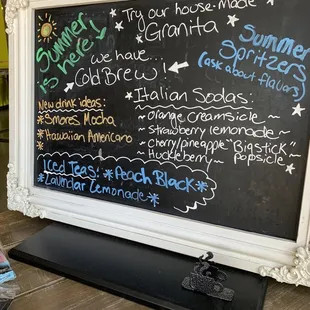 Summer is here!
Try our house-made Granita
we have... Cold Brew!
Summer Spritzers
(ask about flavors)
New drink ideas:
*Smores Mocha
*Hawaiian Americano
Italian Sodas:
~ orange creamsicle ~
~ strawberry lemonade ~
~ cherry/pineapple "Bigstick" popsicle ~
~ Huckleberry ~
Iced Teas: *Peach Black*
*Lavundar Lemonade*